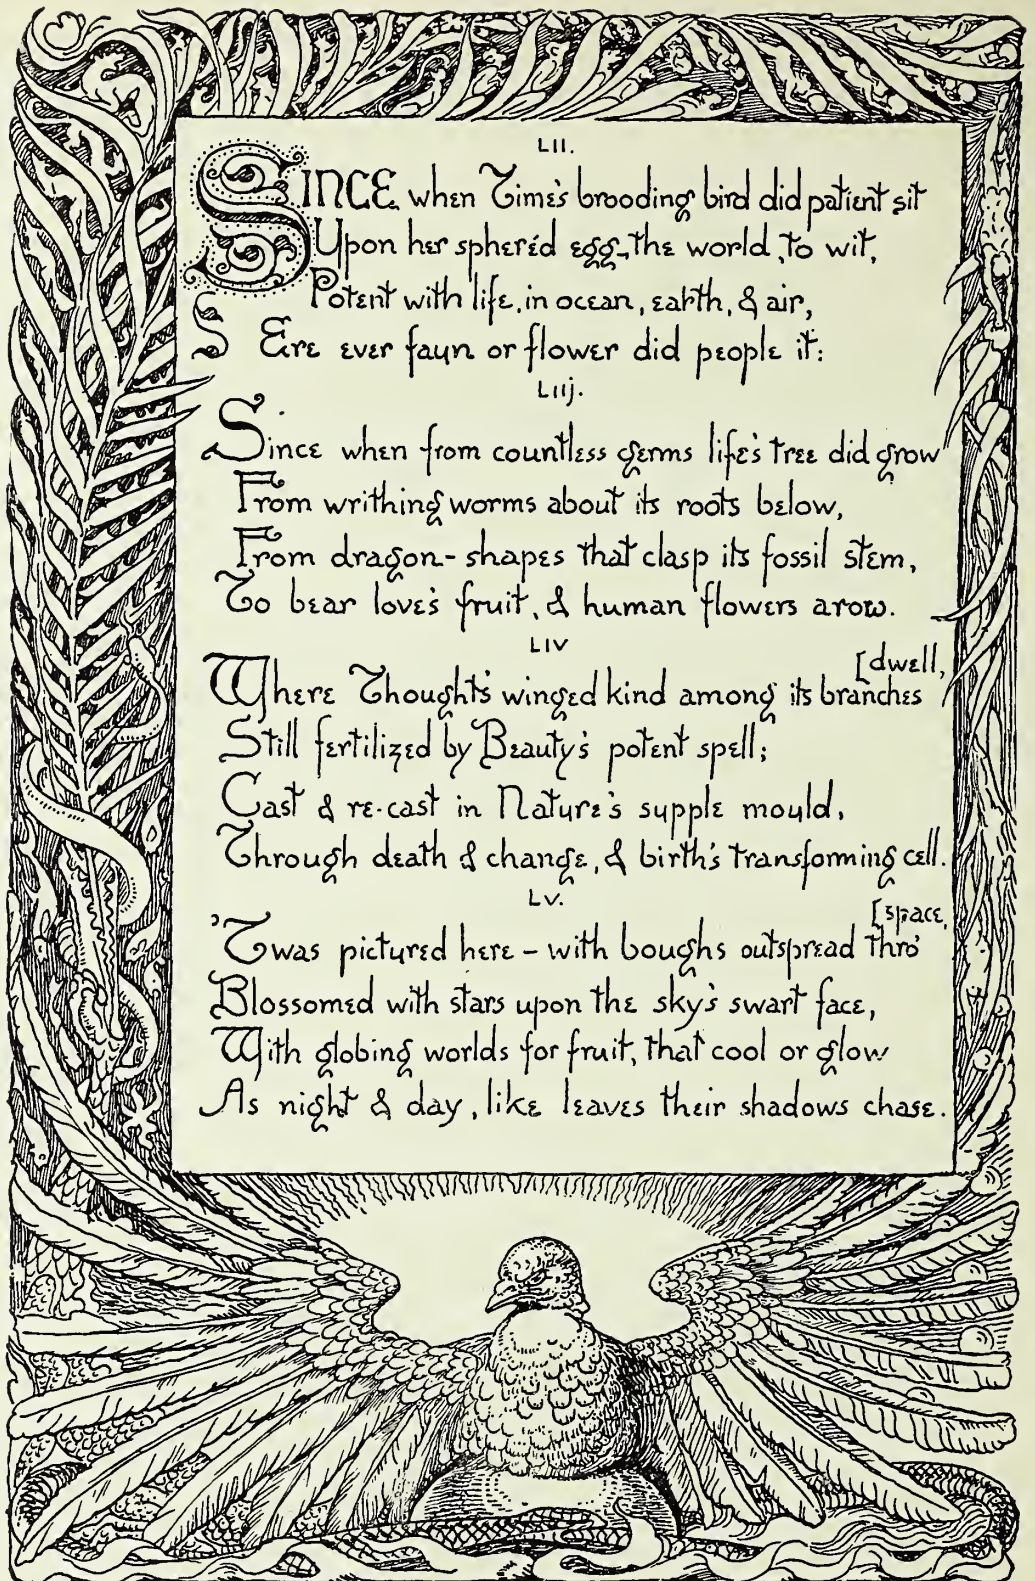 LII.
SINCE when Time's brooding bird did patient sit
Upon her spheréd egg, the world, to wit,
Potent with life, in ocean, earth, & air,
S Ere ever faun or flower did people it:
LIIJ.
Since when from countless germs life's tree did grow
From writhing worms about its roots below,
From dragon-shapes that clasp its fossil stem,
To bear love's fruit, & human flowers arow.
LIV
[dwell,
Where Thought's winged kind among its branches
Still fertilized by Beauty's potent spell;
Cast & re-cast in Nature's supple mould,
Through death & change, & birth's transforming cell.
LV.
[space,
'Twas pictured here – with boughs outspread thro'
Blossomed with stars upon the sky's swart face,
With globing worlds for fruit, that cool or glow
As night & day, like leaves their shadows chase.